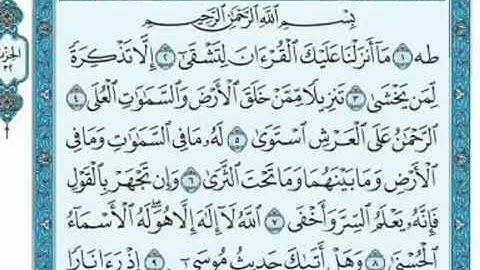 الجزء
٣٢
بِسْمِ اللَّهِ الرَّحْمَٰنِ الرَّحِيمِ
طه ١ مَا أَنزَلْنَا عَلَيْكَ الْقُرْءَانَ لِتَشْقَىٰ ٢ إِلَّا تَذْكِرَةً
لِّمَن يَخْشَىٰ ٣ تَنزِيلًا مِّمَّنْ خَلَقَ الْأَرْضَ وَالسَّمَٰوَٰتِ الْعُلَى ٤
الرَّحْمَٰنُ عَلَى الْعَرْشِ اسْتَوَىٰ ٥ لَهُ مَا فِي السَّمَٰوَٰتِ وَمَا فِي
الْأَرْضِ وَمَا بَيْنَهُمَا وَمَا تَحْتَ الثَّرَىٰ ٦ وَإِن تَجْهَرْ بِالْقَوْلِ
فَإِنَّهُ يَعْلَمُ السِّرَّ وَأَخْفَى ٧ اللَّهُ لَا إِلَٰهَ إِلَّا هُوَ لَهُ الْأَسْمَاءُ
الْحُسْنَىٰ ٨ وَهَلْ أَتَىٰكَ حَدِيثُ مُوسَىٰ ٩ إِذْ رَءَا نَارًا